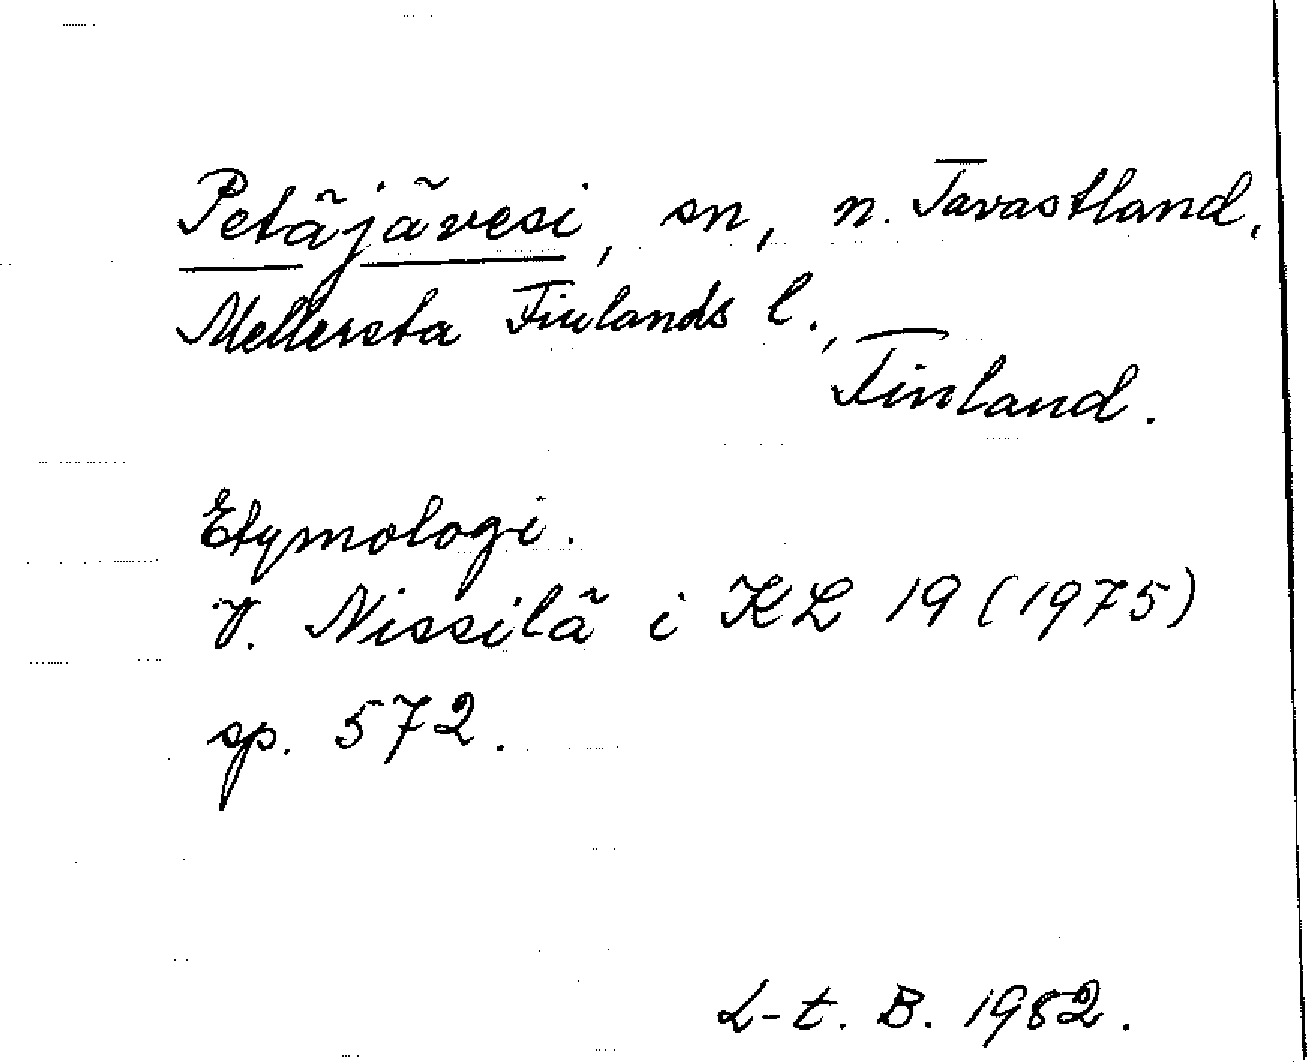 Petäjävesi, sn, n. Tavastland,
Mellersta Finlands l.,
Finland.
Etymologi.
V. Nissilä i KL 19 (1975)
sp. 572.
L-t. B. 1982.